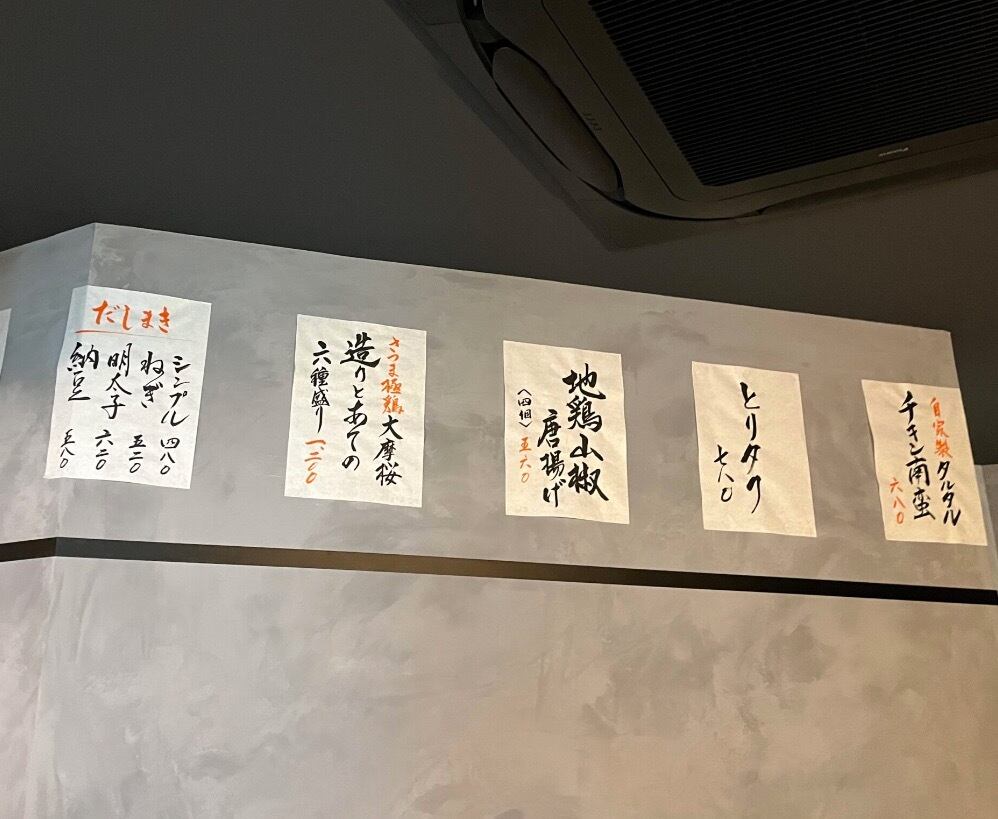 自家製タルタル
チキン南蛮
六八〇
とりタク
七八〇
地鶏山椒
唐揚げ
〈四個〉五六〇
さつま極鶏大摩桜
造りとあての
六種盛り 一、二〇〇
だしまき
シンプル 四八〇
ねぎ 五二〇
明太子 六二〇
納豆 五八〇